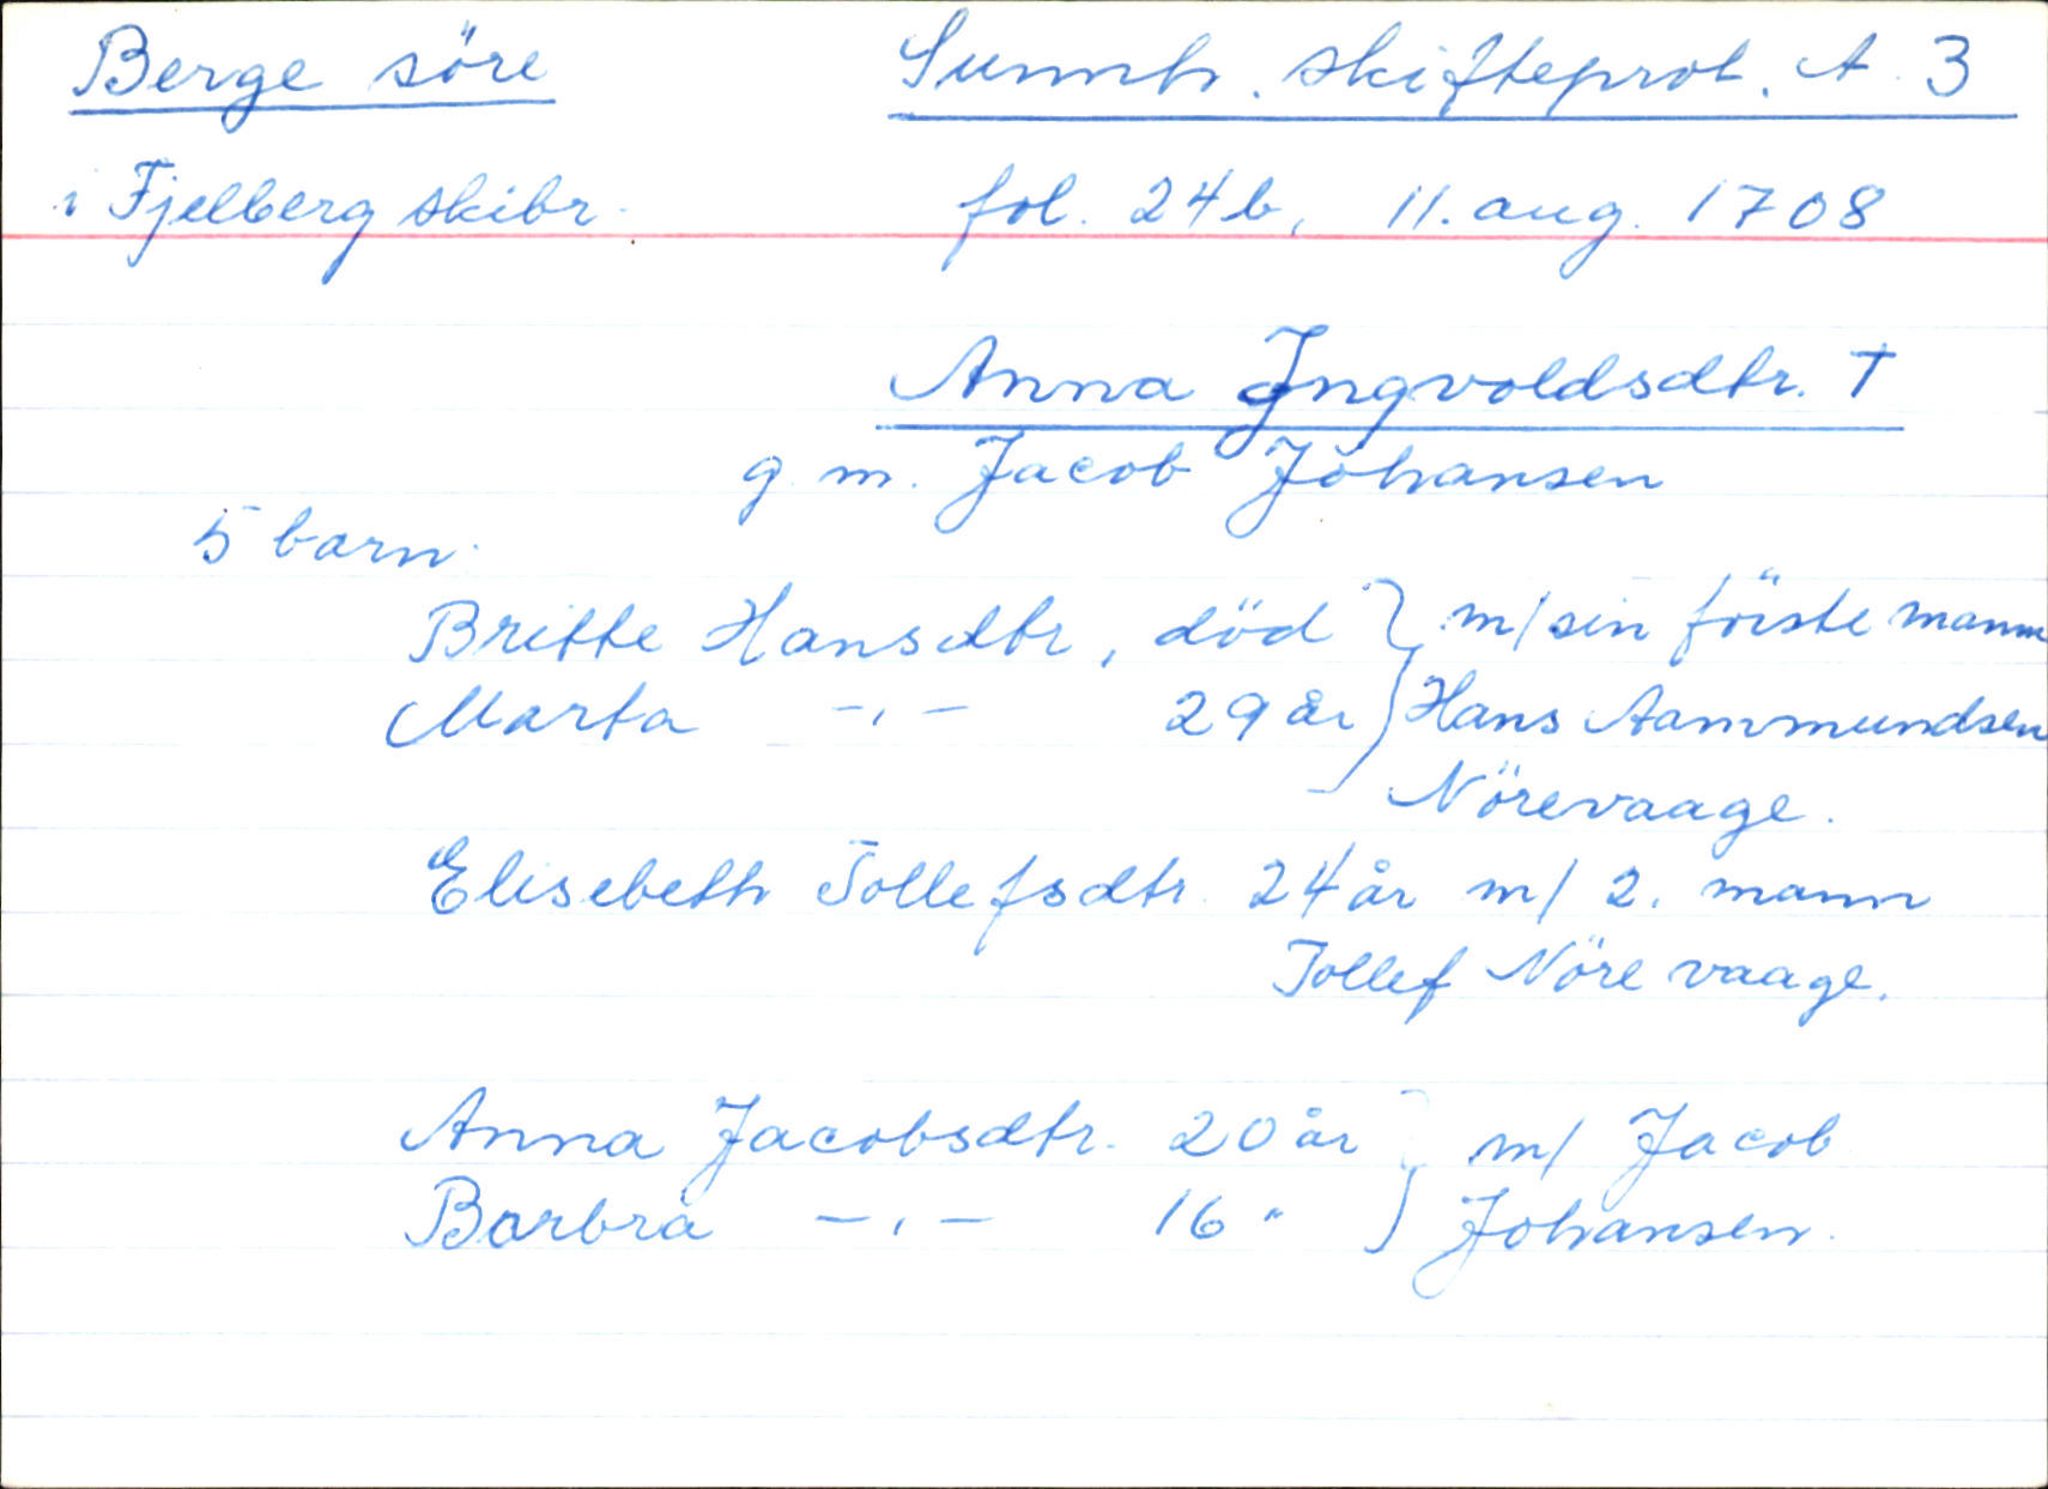 Berge söre Sunnh. skifteprot. A 3
i Fjelberg skibr. fol. 24b, 11. aug. 1708
Anna Ingvoldsdtr. †
g. m. Jacob Johansen
5 barn.
Britte Hansdtr, död } m/ sin förste mann
Marta -,- 29 år } Hans Aammundsen
Nörevaage.
Elisebeth Tollefsdtr. 24 år m/ 2. mann
Tollef Nöre vaage.
Anna Jacobsdtr. 20 år } m/ Jacob
Barbra -,- 16 " } Johansen.